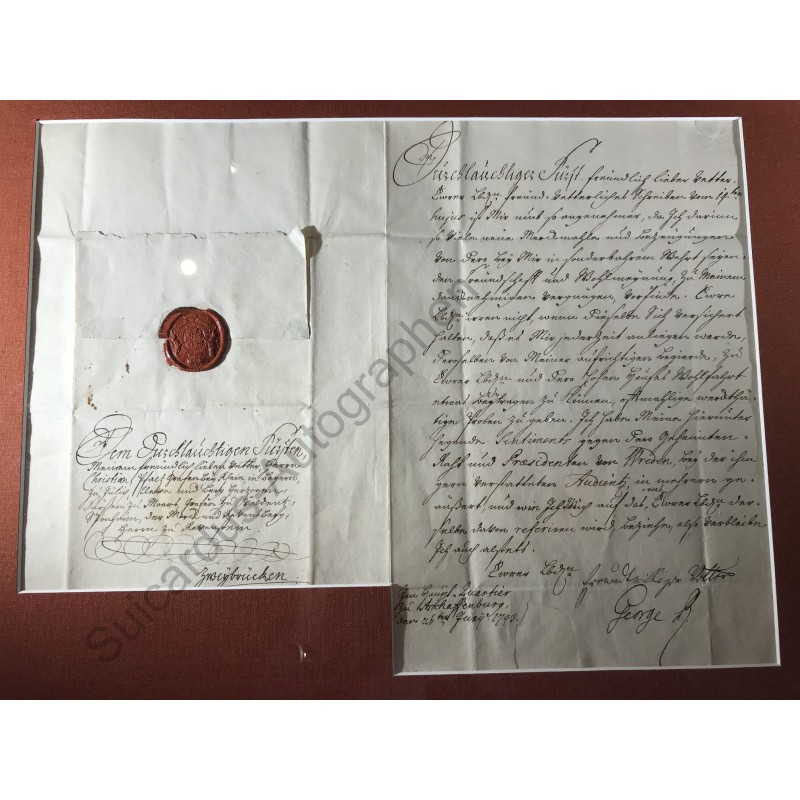 Dem Durchlauchtigen Fürsten,
Meinem freundlich lieben Vetter, Herrn
Christian, Pfaltz Grafen bey Rhein, in Bayern,
zu Gülich, Cleve und Berg Herzogen,
Fürsten zu Moers, Grafen zu Veldentz,
Sponheim, der Marck und Ravensberg,
Herrn zu Ravenstein
Zweybrücken.
Durchlauchtiger Fürst, freundlich lieber Vetter.
Ewrer Lbdn. Freund-Vetterliches Schreiben vom 14ten
hujus ist Mir umb so angenehmer, da Ich darinn
so viele neue Merckmahle und Bezeugungen
von Dero bey Mir in sonderbahrem Wehrt seyen-
den Freundschafft und Wohlmeynung, zu Meinem
dancknehmigen Vergnügen, vorfinde. Ewre
Lbdn. irren nicht, wenn Dieselbe Sich versichert
halten, daß es Mir jederzeit anliegen werde,
Deroselben von Meiner aufrichtigen Begierde, zu
Ewrer Lbdn. und Dero Hohen Hauses Wohlfahrt
etwas beytragen zu können, offtmahlige werckthä-
tige Proben zu geben. Ich habe Meine hierunter
hegende Sentiments gegen Dero Gesandten-
Raht und Præsidenten von Wreden, bey der ihm
gern verstatteten Audientz, in mehrerm ge-
äußert, und wie Ich Mich auf das, was Ewrer Lbdn. der-
selbe davon referiren wird, beziehe, also verbleibe
Ich auch alstets.
Ewrer Lbdn.
freundwilliger Vetter
George R.
Im Haupt-Quartier
zu Aschaffenburg,
den 26ten Juny 1743.
Suicardus Autographen